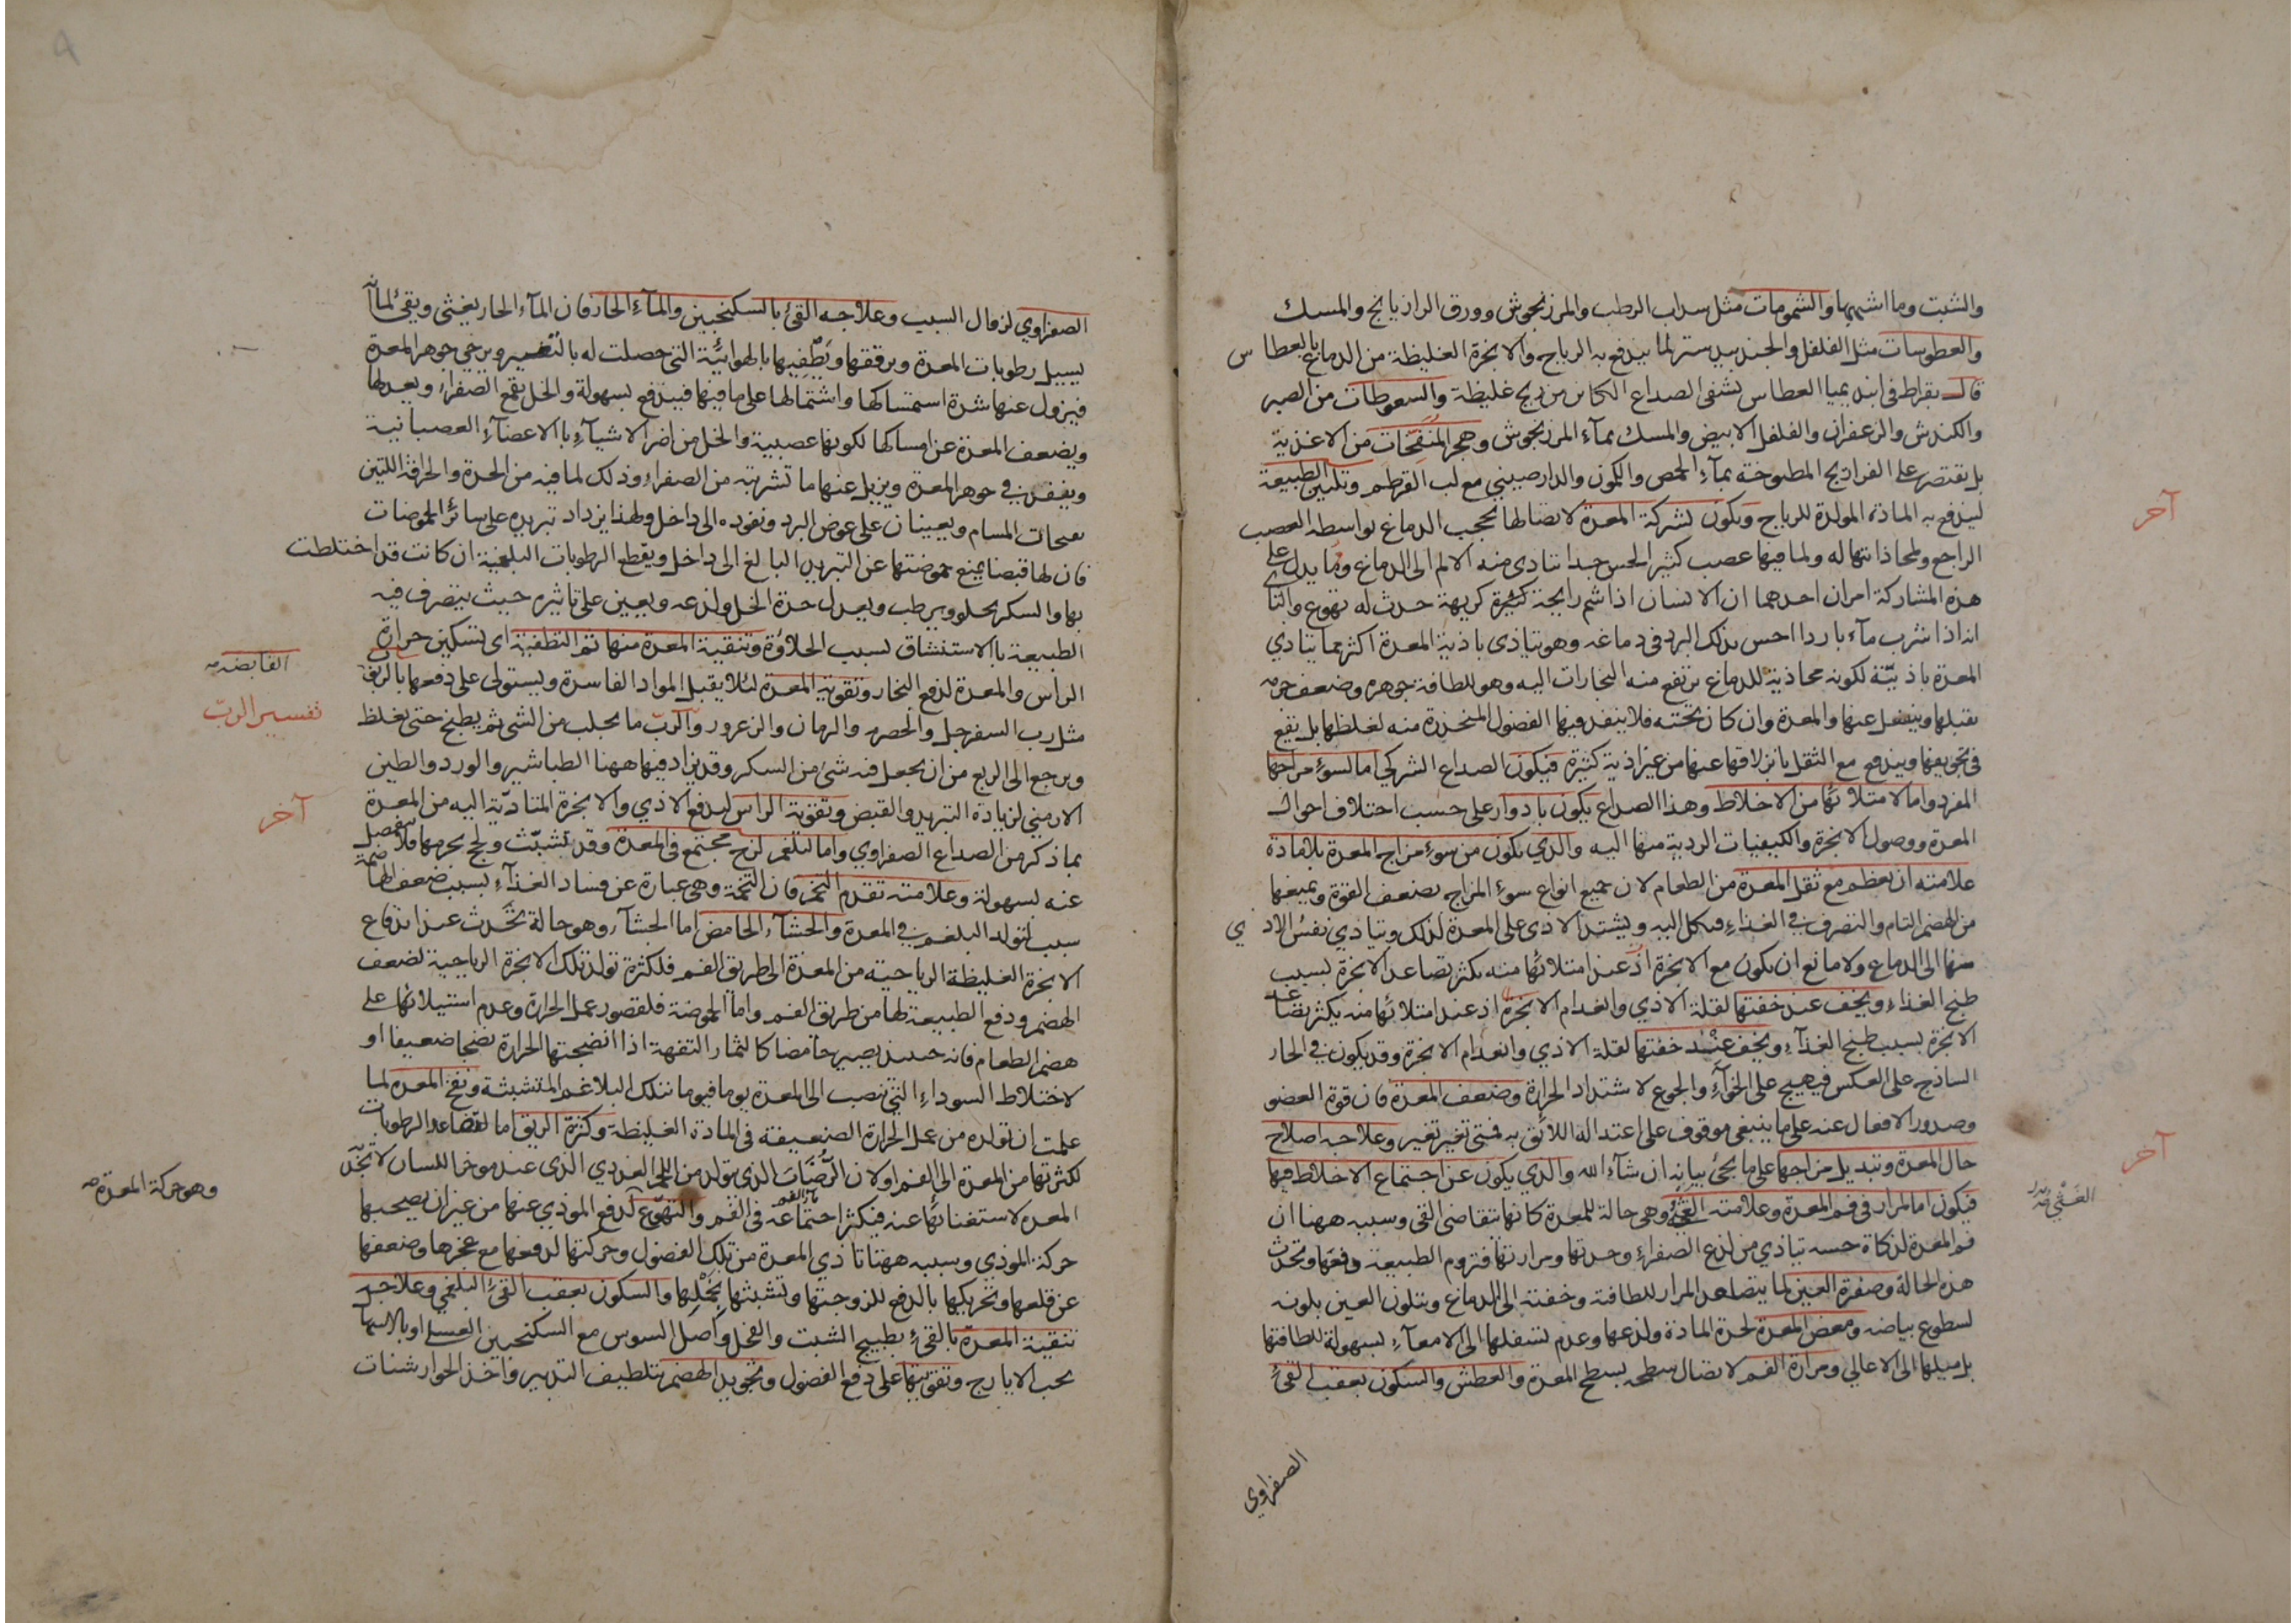 والشبت وما اشبهها والشمومات مثل سداب الرطب والمرزنجوش وورق الرازيانج والمسك
والعطوسات مثل الفلفل والجندبيدستر لما يندفع به الرياح والابخرة الغليظة من الدماغ بالعطاس
قال بقراط في ابيديميا العطاس يشفى الصداع الكائن من ريح غليظة والسعوطات من الصبر
والكندش والزعفران والفلفل الابيض والمسك بمآء المرزنجوش وهجر المنفخات من الاغذية
بل يقتصر على الفراريج المطبوخة بمآء الحمص والكمون والدارصيني مع لب القرطم وتليين الطبيعة
ليندفع به المادة المولدة للرياح ويكون بشركة المعدة لاتصالها بحجب الدماغ بواسطة العصب
الراجع ولمحاذاتها له ولما فيها عصب كثير الحس جدا يتادى منه الالم الى الدماغ ومما يدل على
هذه المشاركة امران احدهما ان الانسان اذا شم رايحة كريهة حدث له تهوع والثانى
انه اذا شرب مآء باردا احس بذلك البرد في دماغه وهو يتاذى باذية المعدة اكثر مما يتاذي
المعدة باذيته لكونه محاذية للدماغ يرتفع منه البخارات اليه وهو للطافة جوهره وضعف جرمه
يقبلها وينفعل عنها والمعدة وان كان تحته فلا ينفذ فيها الفضول المنحدرة منه لغلظها بل يقع
في تجويفها ويندفع مع الثقل بانزلاقها عنها من غير اذية كثيرة فيكون الصداع الشركي اما لسوء مزاجها
المفرد واما لامتلائها من الاخلاط وهذا الصداع يكون بادوار على حسب اختلاف احوال
المعدة ووصول الابخرة والكيفيات الردية منها اليه والذي يكون من سوء مزاج المعدة بلا مادة
علامته ان يعظم مع ثقل المعدة من الطعام لان جميع انواع سوء المزاج يضعف القوة ويمنعها
من الهضم التام والتصرف في الغذاء فيكل اليه ويشتد الاذى على المعدة لذلك ويتادي نفس الاذي
منها الى الدماغ ولا مانع ان يكون مع الابخرة اذ عند امتلائها منه يكثر تصاعد الابخرة بسبب
طبخ الغذاء ويخف عند خفتها لقلة الاذي وانعدام الابخرة اذ عند امتلائها منه يكثر تصاعد
الابخرة بسبب طبخ الغذآء ويخف عند خفتها لقلة الاذي وانعدام الابخرة وقد يكون في الحار
الساذج على العكس فيهيج على الخوآء والجوع لاشتداد الحرارة وضعف المعدة فان قوة العضو
وصدور الافعال عنه على ما ينبغي موقوف على اعتداله اللائق به فمتى تغير تغير وعلاجه اصلاح
حال المعدة وتبديل مزاجها على ما يجئ بيانه ان شآء الله والذي يكون عن اجتماع الاخلاط فيها
فيكون اما لمرار في فم المعدة وعلامته الغثي وهي حالة للمعدة كانها تتقاضى القى وسببه ههنا ان
فم المعدة لذكاة حسه يتاذي من لذع الصفراء وحدتها ومرارتها فتروم الطبيعة دفعها وتحدث
هذه الحالة وصفرة العين لما يتصاعد المرار للطافته وخفته الى الدماغ ويتلون العين بلونه
لسطوع بياضه ومغص المعدة لحدة المادة ولذعها وعدم تسفلها الى الامعآء بسهولة للطافتها
بل ميلها الى الاعالي ومرارة الفم لاتصال سطحه بسطح المعدة والعطش والسكون بعقب القئ
الصفراوي
آخر
آخر
الغثي
الصفراوي لزوال السبب وعلاجه القئ بالسكنجبين والمآء الحار فان المآء الحار يغثى ويقئ لما انه
يسيل رطوبات المعدة ويرققها ويطفيها بالهوائية التي حصلت له بالتسخين ويرخي جوهر المعدة
فيزول عنها شدة استمساكها واشتمالها على ما فيها فيندفع بسهولة والخل يقمع الصفراء ويعدلها
ويضعف المعدة عن امساكها لكونها عصبية والخل من اضر الاشيآء بالاعضآء العصبانية
وينفذ في جوهر المعدة ويزيل عنها ما تشربته من الصفراء وذلك لما فيه من الحدة والحرافة اللتين
تفتحان المسام ويعينان على غوص البرد ونفوذه الى داخل ولهذا يزداد تبريده على سائر الحموضات
فان لها قبضا يمنع حموضتها عن التبريد البالغ الى داخل ويقطع الرطوبات البلغمية ان كانت قد اختلطت
بها والسكر يحلو ويرطب ويعدل حدة الخل ولذعه ويعين على تاثيره حيث يتصرف فيه
الطبيعة بالاستنشاق بسبب الحلاوة وتنقية المعدة منها ثم التطفية اى تسكين حرارة
الراس والمعدة لدفع البخار وتقوية المعدة لئلا يقبل المواد الفاسدة ويستولى على دفعها بالربوب
مثل رب السفرجل والحصرم والرمان والزعرور والرب ما يحلب من الشئ ثم يطبخ حتى يغلظ
ويرجع الى الربع من ان يجعل فيه شئ من السكر وقد يزاد فيها ههنا الطباشير والورد والطين
الارمني لزيادة التبريد والقبض وتقوية الراس ليدفع الاذي والابخرة المتادية اليه من المعدة
بما ذكر من الصداع الصفراوي واما لبلغم لزج مجتمع في المعدة وقد تشبث ولحج بجرمها فلا ينفصل
عنه بسهولة وعلامته تقدم التخم فان التخمة وهى عبارة عن فساد الغذآء بسبب ضعف الهاضمة
سبب لتولد البلغم في المعدة والجشآء الحامض اما الجشآء وهو حالة تحدث عند اندفاع
الابخرة الغليظة الرياحية من المعدة الى طريق الفم فلكثرة تولد تلك الابخرة الرياحية لضعف
الهضم ودفع الطبيعة لها من طريق الفم واما الحموضة فلقصور عمل الحرارة وعدم استيلائها على
هضم الطعام فانه حينئذ يصير حامضا كالثمار التفهة اذا انضجتها الحرارة نضجا ضعيفا او
لاختلاط السوداء التي تنصب الى المعدة يوما فيوما بتلك البلاغم المتشبثة ونفخ المعدة لما
علمت ان تولده من عمل الحرارة الضعيفة في المادة الغليظة وكثرة الريق اما لتصاعد الرطوبات
لكثرتها من المعدة الى الفم او لان الرضاب الذي يتولد من اللحم الغددي الذى عند موخر اللسان لا تجذب
المعدة لاستغنائها عنه فيكثر اجتماعه في الفم والتهوع لدفع الموذي عنها من غير ان يصحبها
حركة الموذي وسببه ههنا تاذي المعدة من تلك الفضول وحركتها لدفعها مع عجزها وضعفها
عن قلعها وتحريكها بالدفع للزوجتها وتشبثها بخملها والسكون بعقب القئ البلغمي وعلاجه
تنقية المعدة بالقئ بطبيخ الشبت والفجل واصل السوس مع السكنجبين العسلى او بالاسهال
بحب الايارج وتقويتها على دفع الفضول وتجويد الهضم بتلطيف التدبير واخذ الجوارشنات
القابضة
تفسير الرب
آخر
وهو حركة المعدة